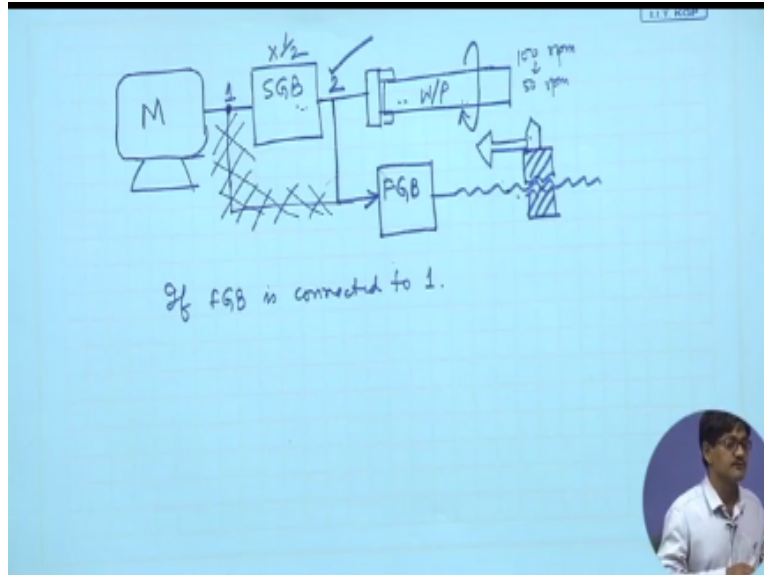 IIT KGP
x 1/2
M
1
SGB
2
W/P
100 rpm
↓
50 rpm
FGB
If FGB is connected to 1.